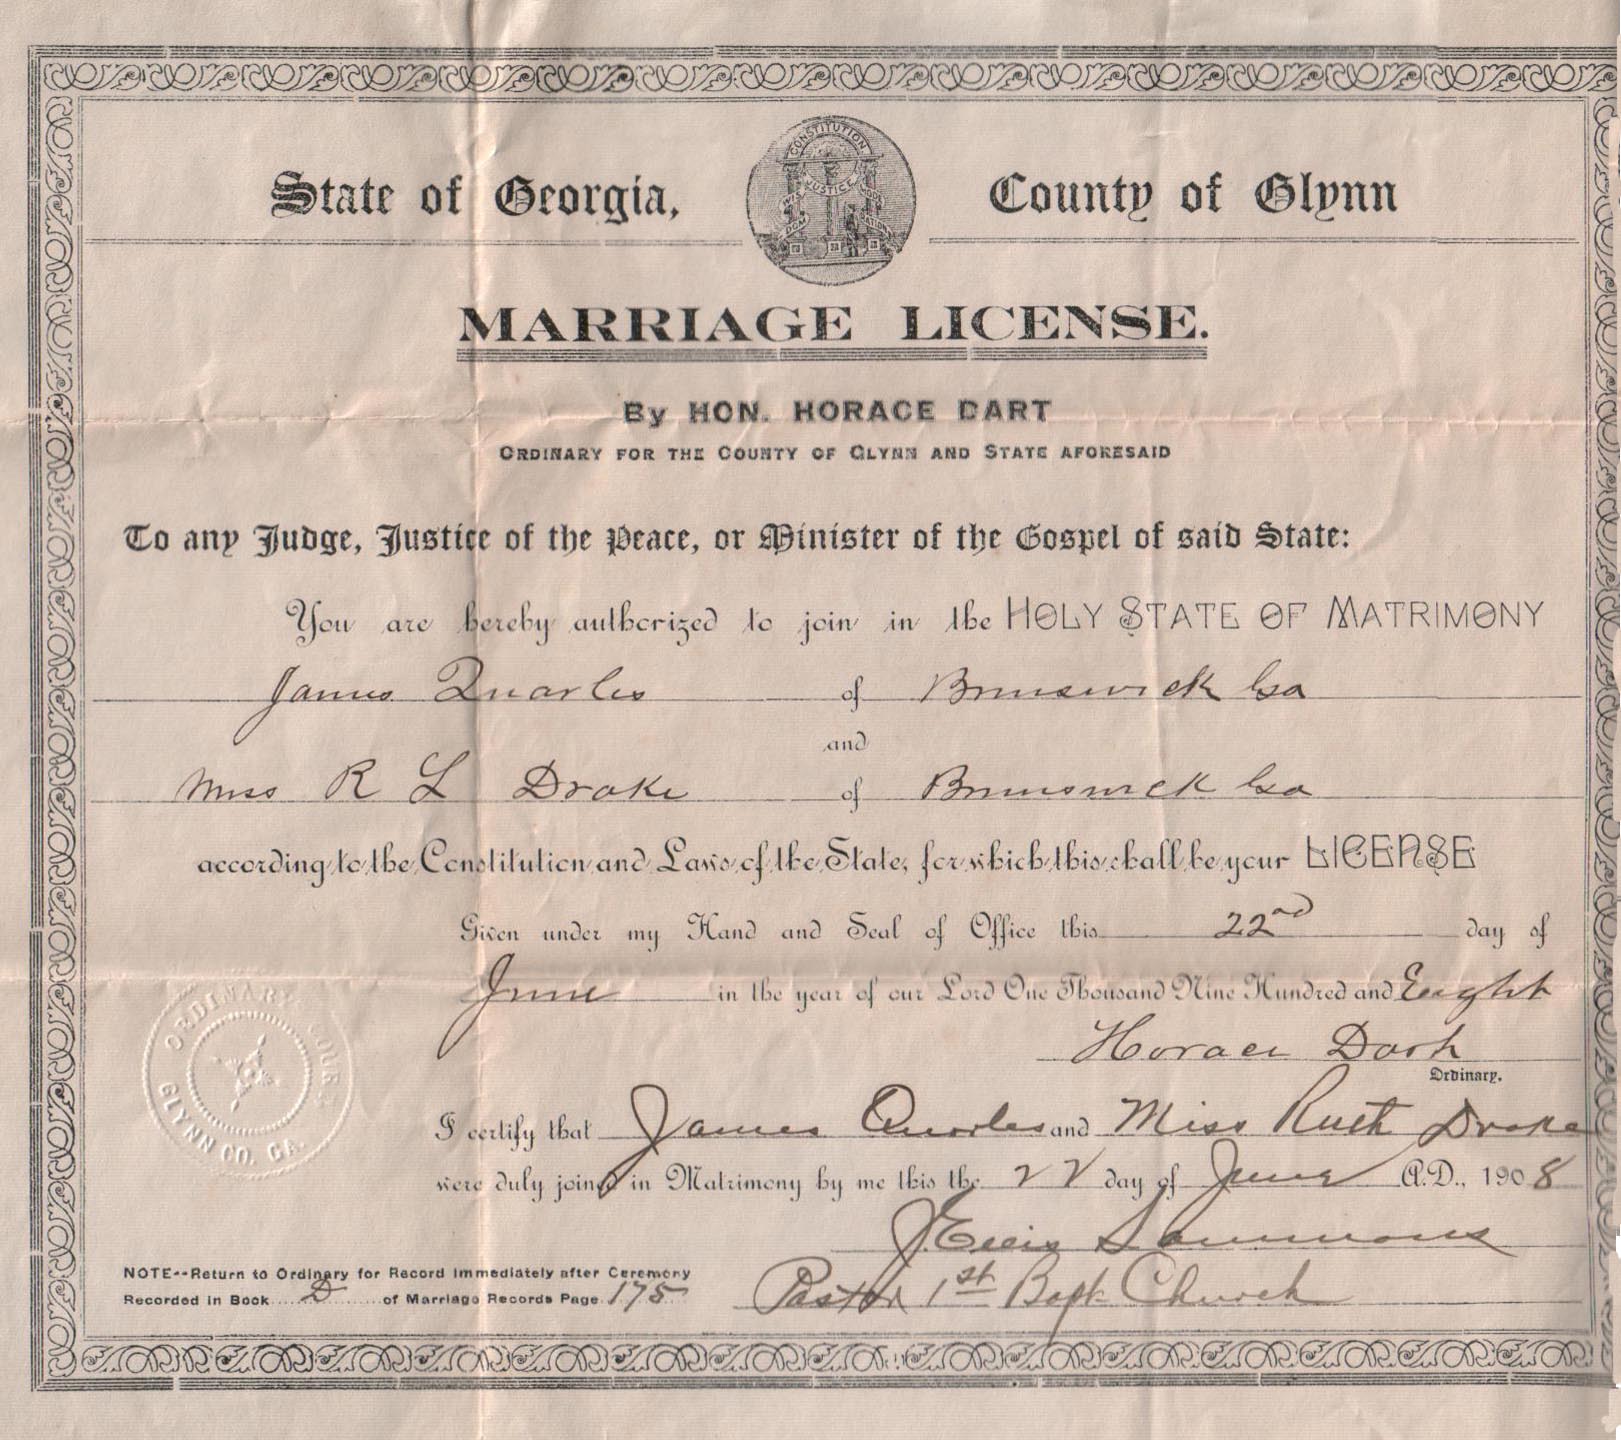 State of Georgia, County of Glynn
CONSTITUTION
JUSTICE
MARRIAGE LICENSE.
By HON. HORACE DART
ORDINARY FOR THE COUNTY OF GLYNN AND STATE AFORESAID
To any Judge, Justice of the Peace, or Minister of the Gospel of said State:
You are hereby authorized to join in the HOLY STATE OF MATRIMONY
James Quarles of Brunswick Ga
and
Miss R L Drake of Brunswick Ga
according to the Constitution and Laws of the State, for which this shall be your LICENSE
Given under my Hand and Seal of Office this 22nd day of
June in the year of our Lord One Thousand Nine Hundred and Eight
Horace Dart
Ordinary.
ORDINARY COURT
GLYNN CO. GA.
I certify that James Quarles and Miss Ruth Drake
were duly joined in Matrimony by me this the 22 day of June A.D., 1908
J. Ellis Sammons
Pastor 1st Bapt Church
NOTE--Return to Ordinary for Record Immediately after Ceremony
Recorded in Book D of Marriage Records Page 175